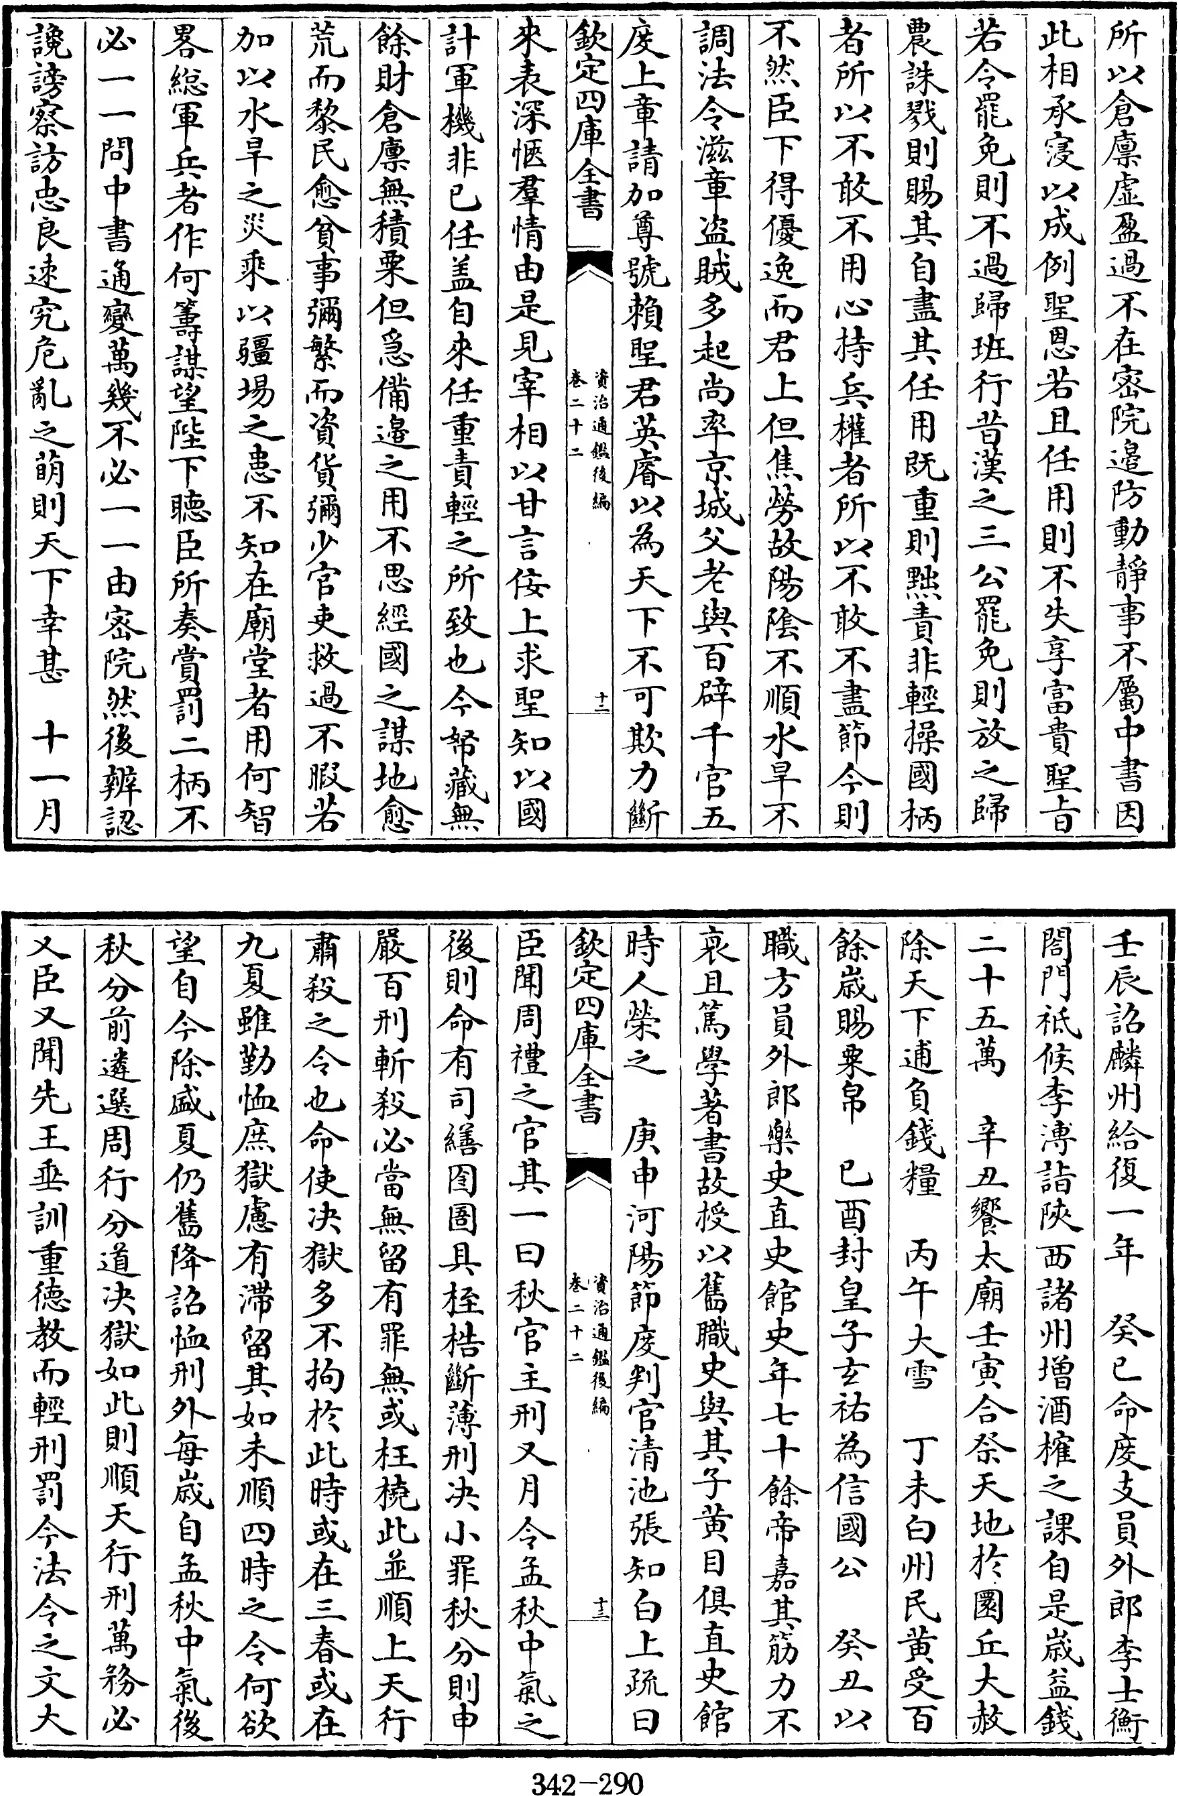 所以倉廪虚盈過不在宻院邉防動靜事不屬中書因
此相承寖以成例聖恩若且任用則不失享富貴聖㫖
若令罷免則不過歸班行昔漢之三公罷免則放之歸
農誅戮則賜其自盡其任用既重則黜責非輕操國柄
者所以不敢不用心持兵權者所以不敢不盡節今則
不然臣下得優逸而君上但焦勞故陽隂不順水旱不
調法令滋章盗賊多起尚率京城父老與百辟千官五
度上章請加尊號賴聖君英睿以為天下不可欺力斷
欽定四庫全書
資治通鑑後編
卷二十二
十二
來表深惬羣情由是見宰相以甘言佞上求聖知以國
計軍機非已任盖自來任重責輕之所致也今帑藏無
餘財倉廪無積粟但急備邉之用不思經國之謀地愈
荒而黎民愈貧事彌繁而資貨彌少官吏救過不暇若
加以水旱之災乘以疆埸之患不知在廟堂者用何智
畧總軍兵者作何籌謀望陛下聽臣所奏賞罰二柄不
必一一問中書通變萬幾不必一一由宻院然後辨認
讒謗察訪忠良速究危亂之萌則天下幸甚　十一月
壬辰詔麟州給復一年　癸巳命度支員外郎李士衡
閤門祗候李溥詣陜西諸州增酒榷之課自是嵗益錢
二十五萬　辛丑饗太廟壬寅合祭天地於圜丘大赦
除天下逋負錢糧　丙午大雪　丁未白州民黄受百
餘嵗賜粟帛　己酉封皇子玄祐為信國公　癸丑以
職方員外郎樂史直史館史年七十餘帝嘉其筋力不
衰且篤學著書故授以舊職史與其子黄目俱直史館
時人榮之　庚申河陽節度判官清池張知白上疏曰
欽定四庫全書
資治通鑑後編
卷二十二
十三
臣聞周禮之官其一曰秋官主刑又月令孟秋中氣之
後則命有司繕囹圄具桎梏斷薄刑决小罪秋分則申
嚴百刑斬殺必當無留有罪無或枉橈此並順上天行
肅殺之令也命使决獄多不拘於此時或在三春或在
九夏雖勤恤庶獄慮有滯留其如未順四時之令何欲
望自今除盛夏仍舊降詔恤刑外每嵗自孟秋中氣後
秋分前遴選周行分道决獄如此則順天行刑萬務必
乂臣又聞先王垂訓重德教而輕刑罰今法令之文大
342-290